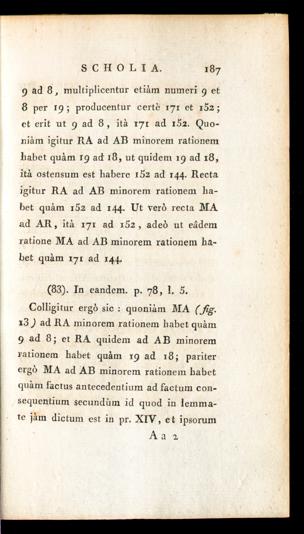 SCHOLIA. 187
9 ad 8, multiplicentur etiàm numeri 9 et
8 per 19; producentur certè 171 et 152;
et erit ut 9 ad 8, ità 171 ad 152. Quo-
niàm igitur RA ad AB minorem rationem
habet quàm 19 ad 18, ut quidem 19 ad 18,
ità ostensum est habere 152 ad 144. Recta
igitur RA ad AB minorem rationem ha-
bet quàm 152 ad 144. Ut verò recta MA
ad AR, ità 171 ad 152, adeò ut eâdem
ratione MA ad AB minorem rationem ha-
bet quàm 171 ad 144.
(83). In eandem. p. 78, l. 5.
Colligitur ergò sic : quoniàm MA (fig.
13) ad RA minorem rationem habet quàm
9 ad 8; et RA quidem ad AB minorem
rationem habet quàm 19 ad 18; pariter
ergò MA ad AB minorem rationem habet
quàm factus antecedentium ad factum con-
sequentium secundùm id quod in lemma-
te jàm dictum est in pr. XIV, et ipsorum
A a 2